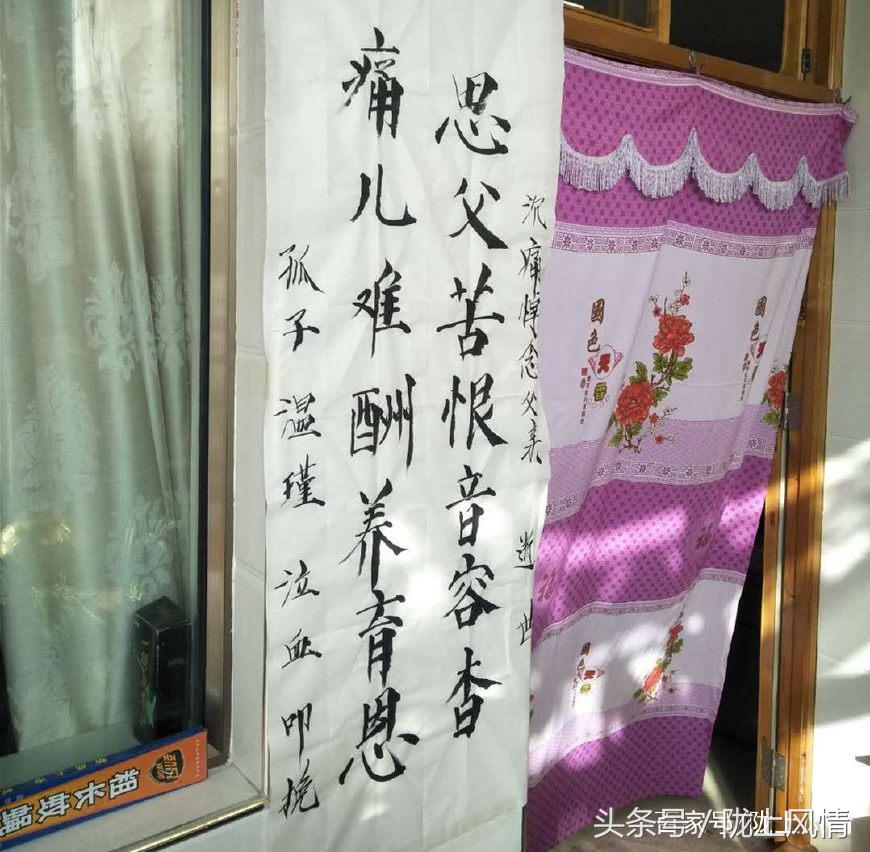 沉痛悼念父亲 逝世
思父苦恨音容杳
痛儿难酬养育恩
孤子 温瑾 泣血叩挽
國色
天香
國色
天
國色
天
粗长蚊蝇
头条号/陇上风情